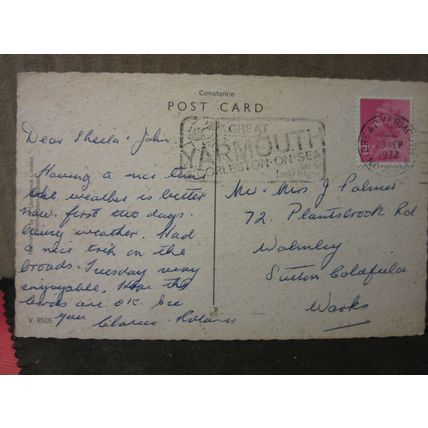 Constance
POST CARD
GREAT
YARMOUTH
GORLESTON-ON-SEA
GREAT YARMOUTH
23 SEP
1972
Dear Sheila & John,
Having a nice time
the weather is better
now. first two days
lousy weather. Had
a nice trip on the
broads. Tuesday very
enjoyable. Hope the
birds are O.K. See
you
Mr & Mrs J Palmer
72, Plantsbrook Rd
Walmley
Sutton Coldfield
Warks
V. 8505